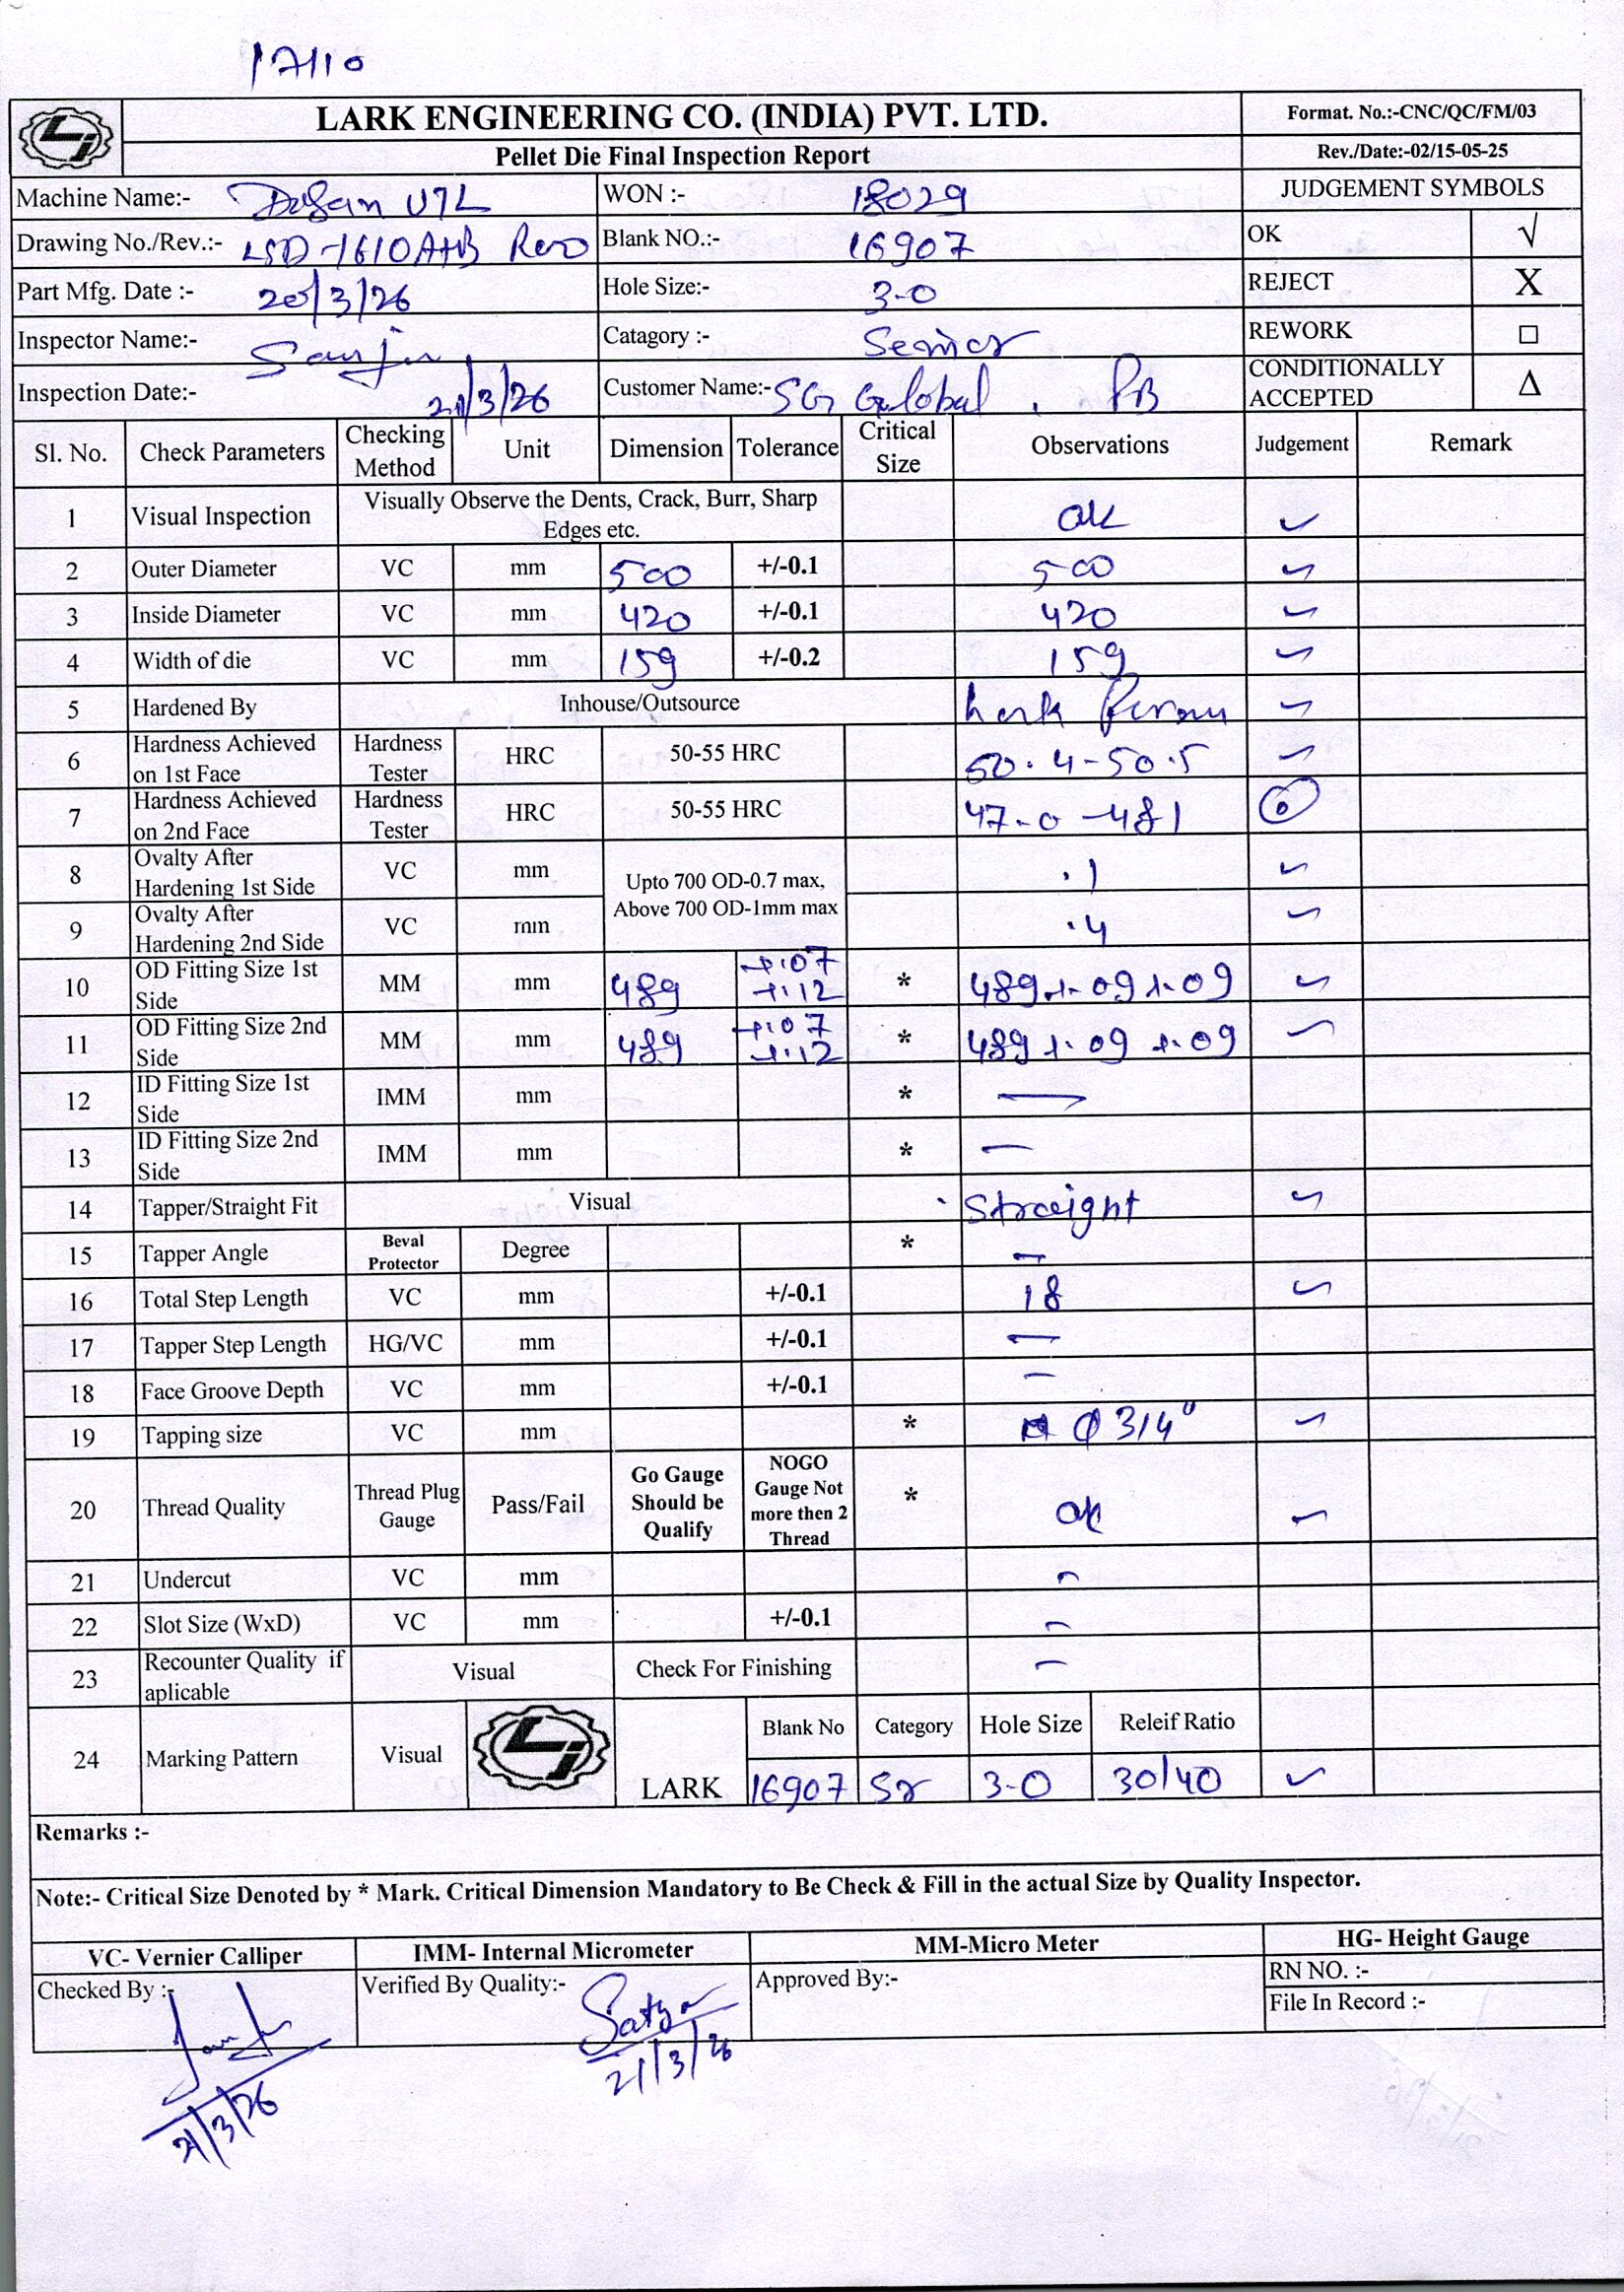 17110
LARK ENGINEERING CO. (INDIA) PVT. LTD.
Format. No.:-CNC/QC/FM/03
Pellet Die Final Inspection Report
Rev./Date:-02/15-05-25
Machine Name:- U7L WON :- 18029 JUDGEMENT SYMBOLS
Drawing No./Rev.:- LSD-1610A+B Rev0 Blank NO.:- 16907 OK √
Part Mfg. Date :- 20/3/26 Hole Size:- 3-0 REJECT X
Inspector Name:- Sanju Catagory :- Senior REWORK □
Inspection Date:- 21/3/26 Customer Name:- SG Global, PB CONDITIONALLY ACCEPTED Δ
Sl. No. Check Parameters Checking Method Unit Dimension Tolerance Critical Size Observations Judgement Remark
1 Visual Inspection Visually Observe the Dents, Crack, Burr, Sharp Edges etc. ok ✓
2 Outer Diameter VC mm 500 +/-0.1 500 ✓
3 Inside Diameter VC mm 420 +/-0.1 420 ✓
4 Width of die VC mm 159 +/-0.2 159 ✓
5 Hardened By Inhouse/Outsource Lark ✓
6 Hardness Achieved on 1st Face Hardness Tester HRC 50-55 HRC 50.4-50.5 ✓
7 Hardness Achieved on 2nd Face Hardness Tester HRC 50-55 HRC 47-0-481
8 Ovalty After Hardening 1st Side VC mm Upto 700 OD-0.7 max, Above 700 OD-1mm max .1 ✓
9 Ovalty After Hardening 2nd Side VC mm .4 ✓
10 OD Fitting Size 1st Side MM mm 489 +.07 +.12 * 489+.09+.09 ✓
11 OD Fitting Size 2nd Side MM mm 489 +.07 +.12 * 489+.09+.09 ✓
12 ID Fitting Size 1st Side IMM mm * —
13 ID Fitting Size 2nd Side IMM mm * —
14 Tapper/Straight Fit Visual Straight ✓
15 Tapper Angle Beval Protector Degree * —
16 Total Step Length VC mm +/-0.1 18 ✓
17 Tapper Step Length HG/VC mm +/-0.1 —
18 Face Groove Depth VC mm +/-0.1 —
19 Tapping size VC mm * Φ 3/4" ✓
20 Thread Quality Thread Plug Gauge Pass/Fail Go Gauge Should be Qualify NOGO Gauge Not more then 2 Thread * ok ✓
21 Undercut VC mm —
22 Slot Size (WxD) VC mm +/-0.1 —
23 Recounter Quality if aplicable Visual Check For Finishing —
24 Marking Pattern Visual LARK Blank No Category Hole Size Releif Ratio
16907 Sr 3-0 30/40 ✓
Remarks :-
Note:- Critical Size Denoted by * Mark. Critical Dimension Mandatory to Be Check & Fill in the actual Size by Quality Inspector.
VC- Vernier Calliper IMM- Internal Micrometer MM-Micro Meter HG- Height Gauge
Checked By :- Verified By Quality:- Satya Approved By:- RN NO. :-
File In Record :-
21/3/26
21/3/26